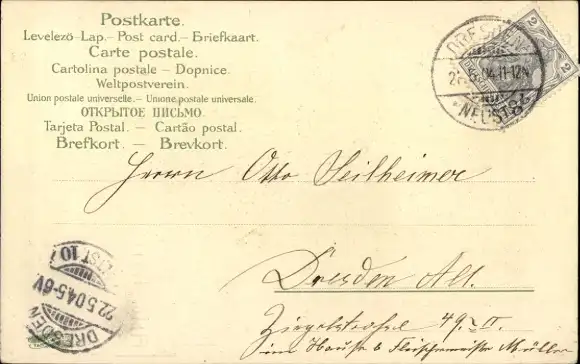 Postkarte.
Levelező-Lap.- Post card.- Briefkaart.
Carte postale.
Cartolina postale - Dopnice.
Weltpostverein.
Union postale universelle.- Unione postale universale.
ОТКРЫТОЕ ПИСЬМО.
Tarjeta Postal. - Cartão postal.
Brefkort. - Brevkort.
DRESDEN
04.11-12V
NEUST.8
2
2
Herrn Otto Seilheimer
Dresden Alt.
Ziegelstraße 49. II.
im Hause b Fleischermeister Müller
ALTST 10
22.5.04.5-6V.
DRESDEN